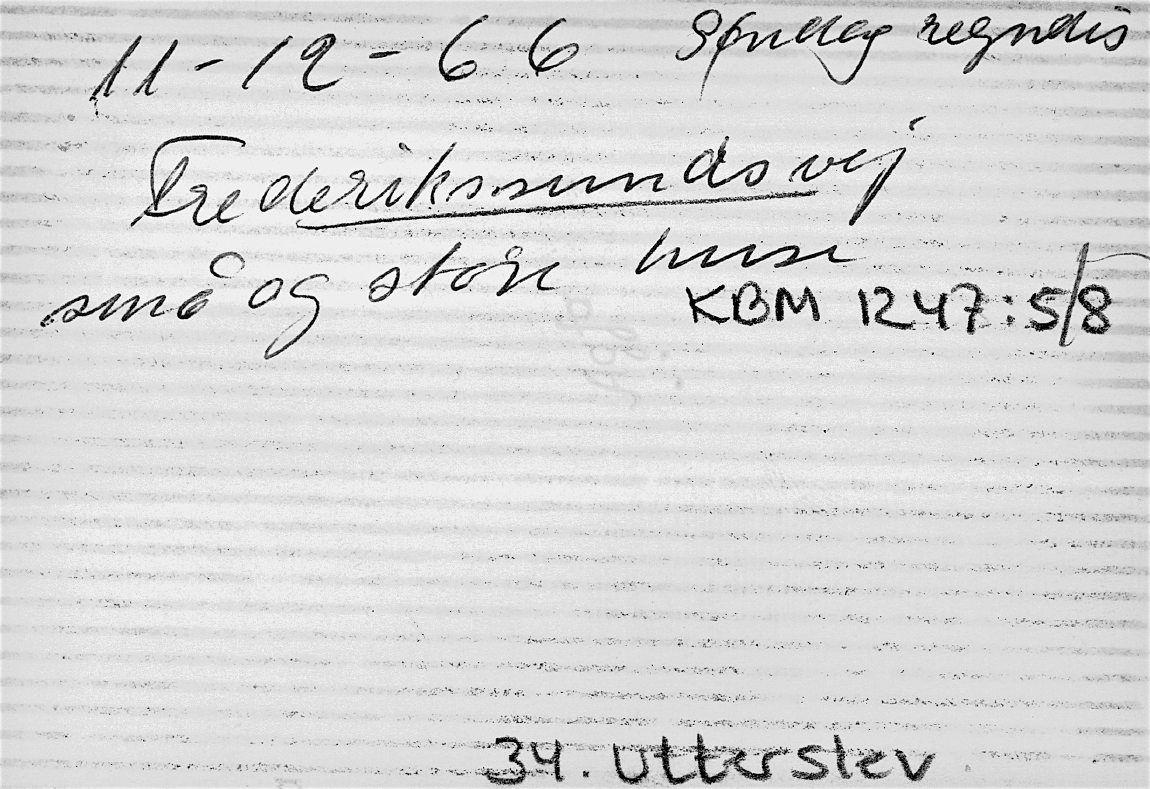 11-12-66 Søndag regndis
Frederikssundsvej
små og store huse
KBM 1247:5/8
34. Utterslev